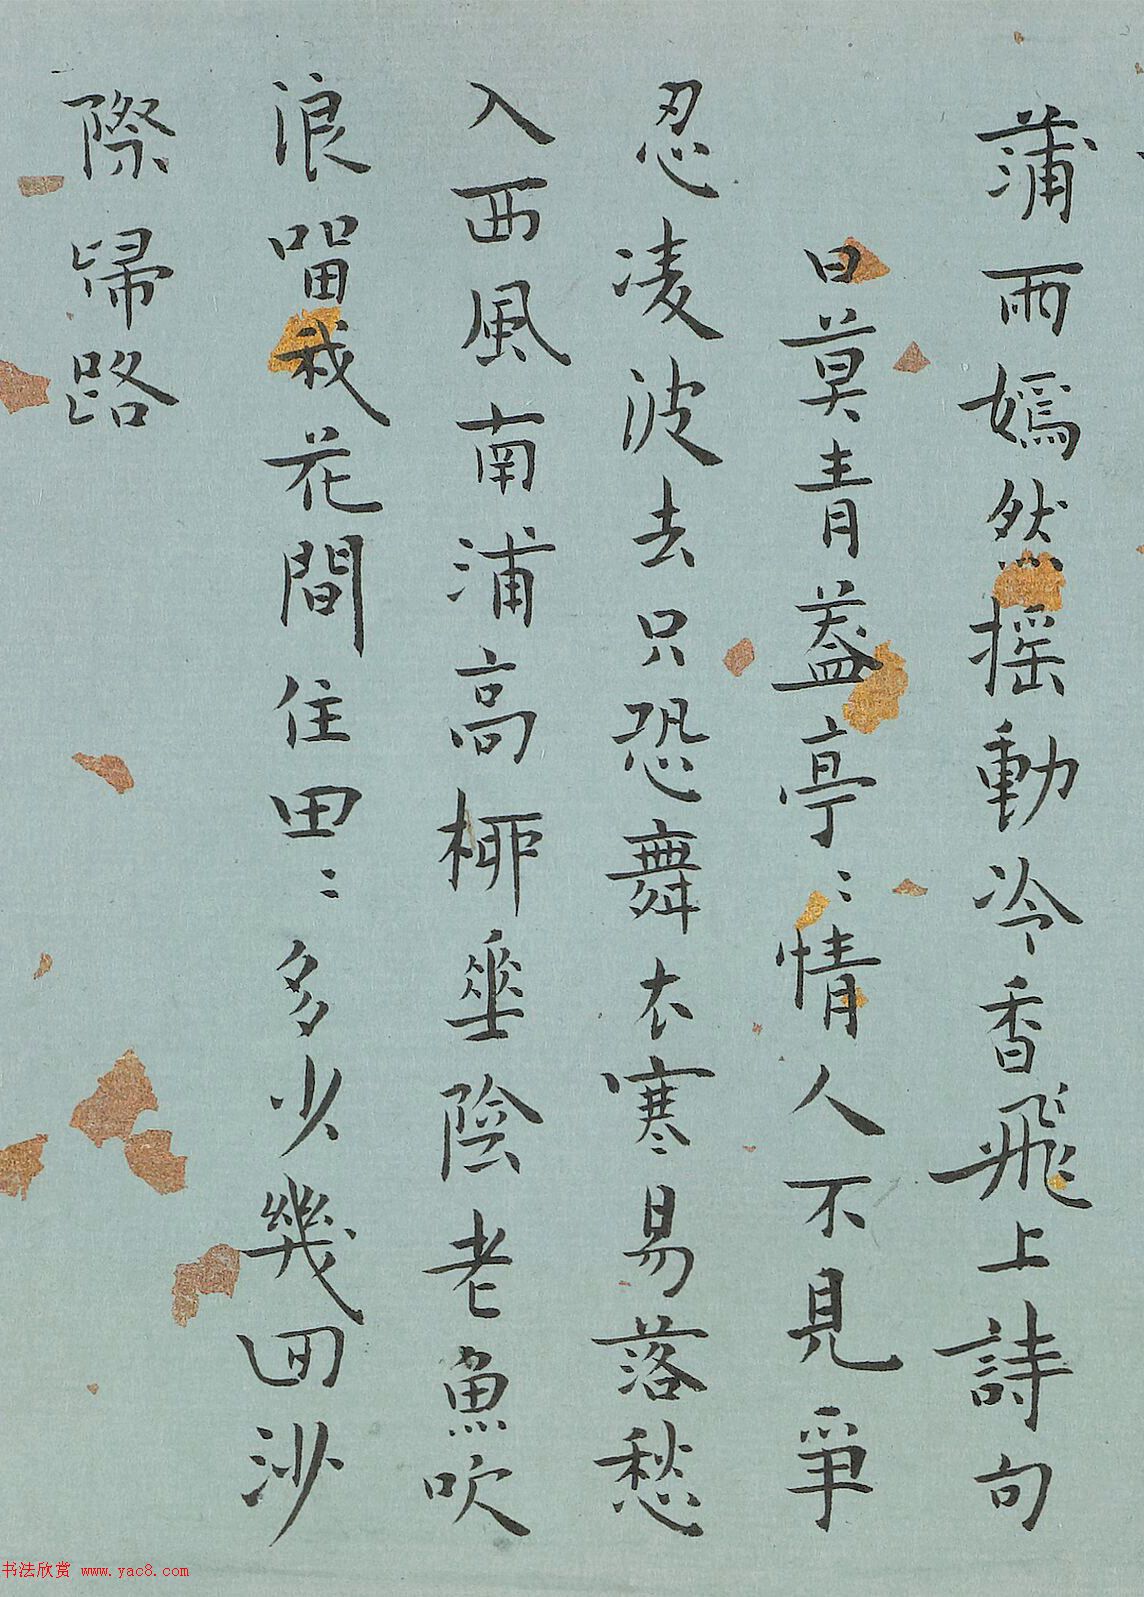 蒲雨嫣然搖動冷香飛上詩句
日莫青蓋亭〻情人不見爭
忍凌波去只恐舞衣寒易落愁
入西風南浦高桺垂陰老魚吹
浪畱我花間住田〻多少幾回沙
際歸路
书法欣赏 www.yac8.com